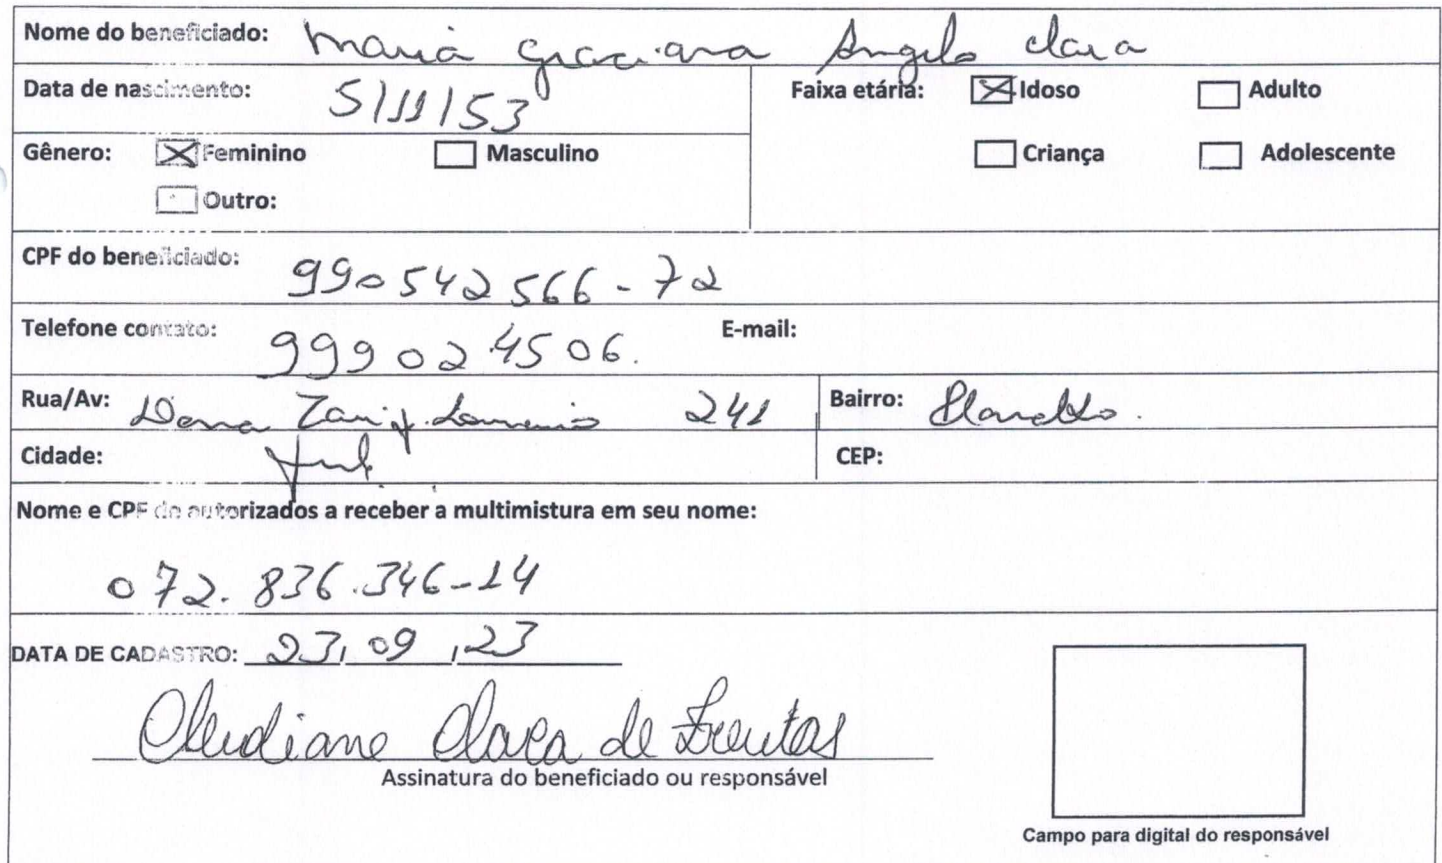 Nome do beneficiado: Maria Graciana Angelo Clara
Data de nascimento: 5/11/53 Faixa etária: Idoso Adulto
Gênero: Feminino Masculino Criança Adolescente
Outro:
CPF do beneficiado: 990542566-72
Telefone contato: 999024506. E-mail:
Rua/Av: Dona 241 Bairro: Planalto.
Cidade: CEP:
Nome e CPF de autorizados a receber a multimistura em seu nome:
072.836.346-14
DATA DE CADASTRO: 23, 09, 23
Cleudiane Clara de Freitas
Assinatura do beneficiado ou responsável
Campo para digital do responsável